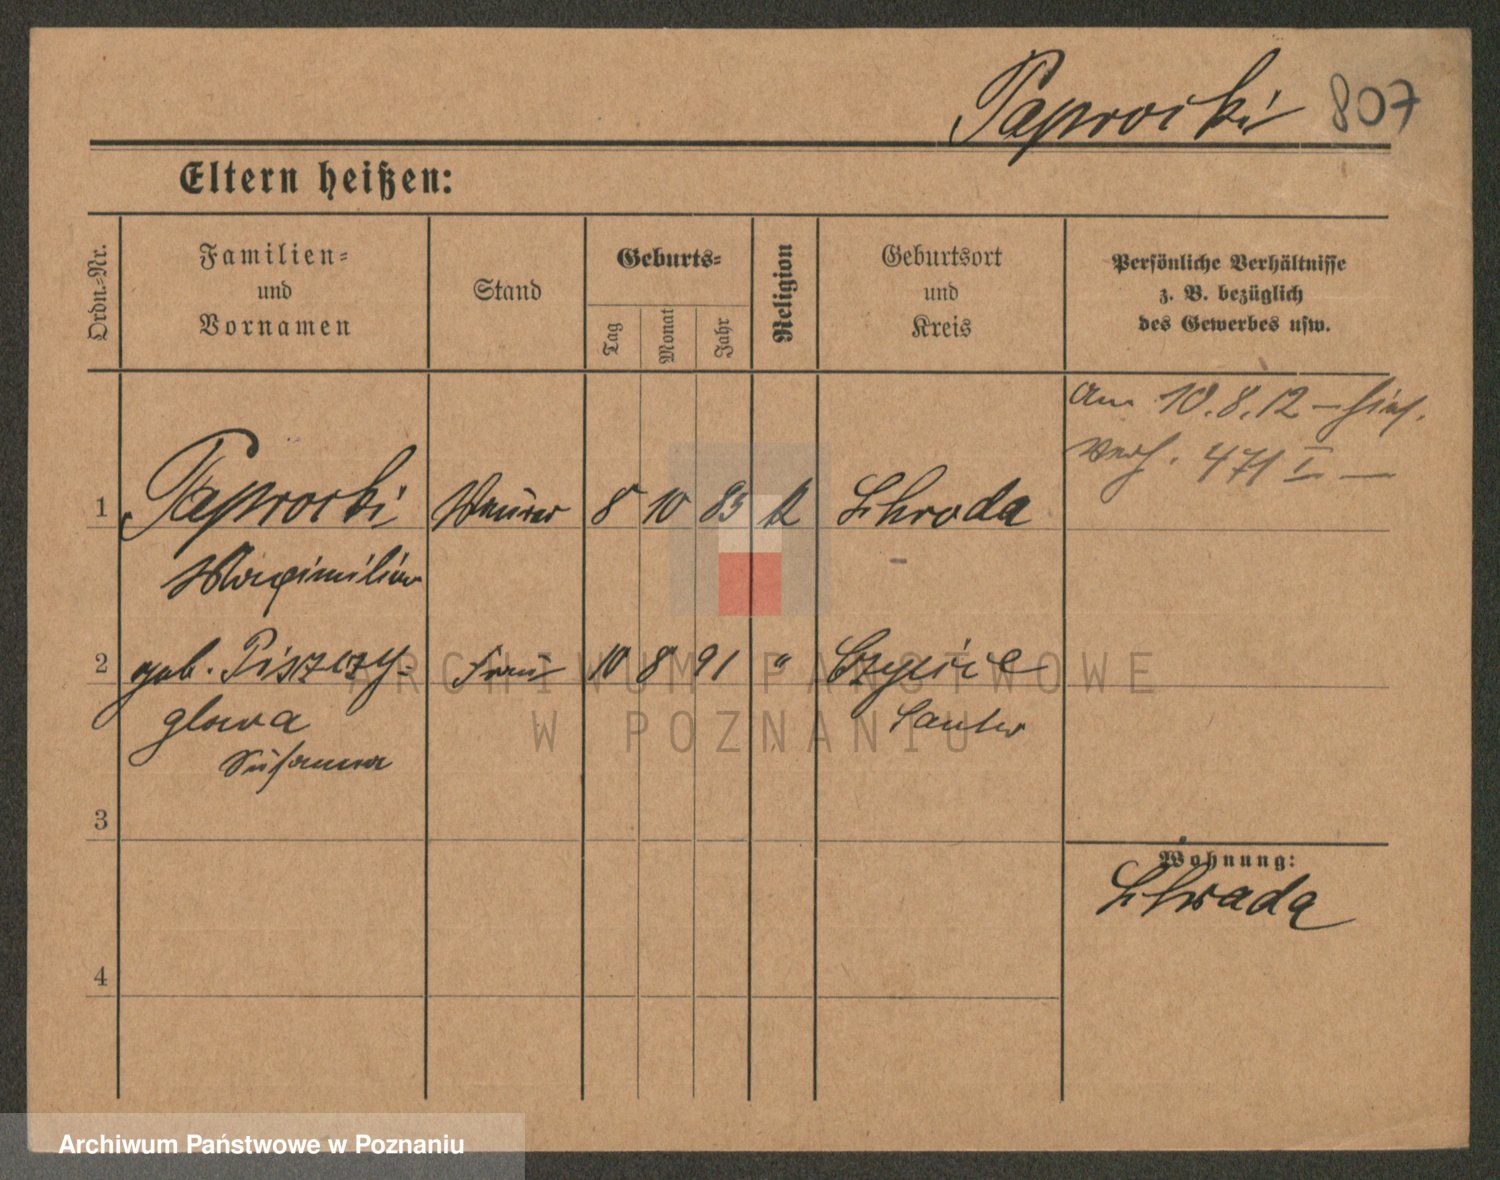 Paprocki 807
Eltern heißen:
Ordn.-Nr.
Familien-
und
Vornamen
Stand
Geburts-
Tag
Monat
Jahr
Religion
Geburtsort
und
Kreis
Persönliche Verhältnisse
z. B. bezüglich
des Gewerbes usw.
am 10.8.12 –
471 I –
1 Paprocki Maurer 8 10 83 k Schroda
Maximilian
2 geb. Piszczy- Frau 10 8 91 "
glowa Samter
Susanna
3
Wohnung:
Schroda
4
ARCHIWUM PAŃSTWOWE
W POZNANIU
Archiwum Państwowe w Poznaniu